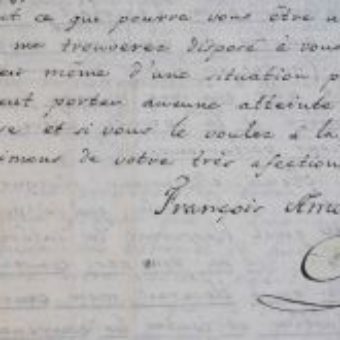 t ce que pourra vous être u
me trouverez disposé à vous
même d'une situation p
eut porter aucune atteinte
re et si vous le voulez à la
imens de votre très afection
François Ame